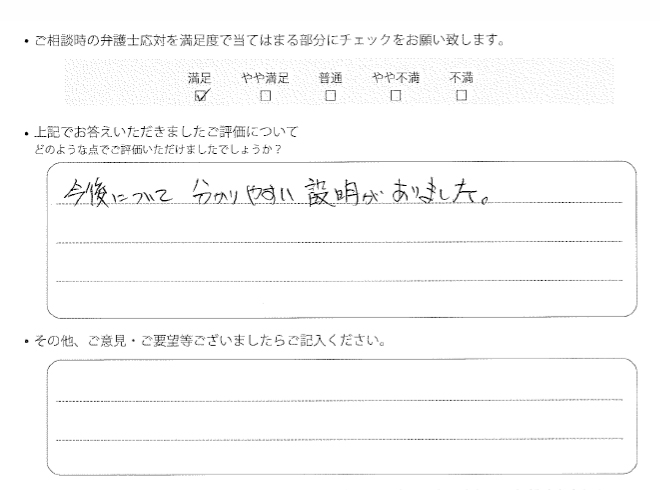 ・ご相談時の弁護士応対を満足度で当てはまる部分にチェックをお願い致します。
満足 やや満足 普通 やや不満 不満
☑ □ □ □ □
・上記でお答えいただきましたご評価について
どのような点でご評価いただけましたでしょうか？
今後について 分かりやすい 説明が ありました。
・その他、ご意見・ご要望等ございましたらご記入ください。